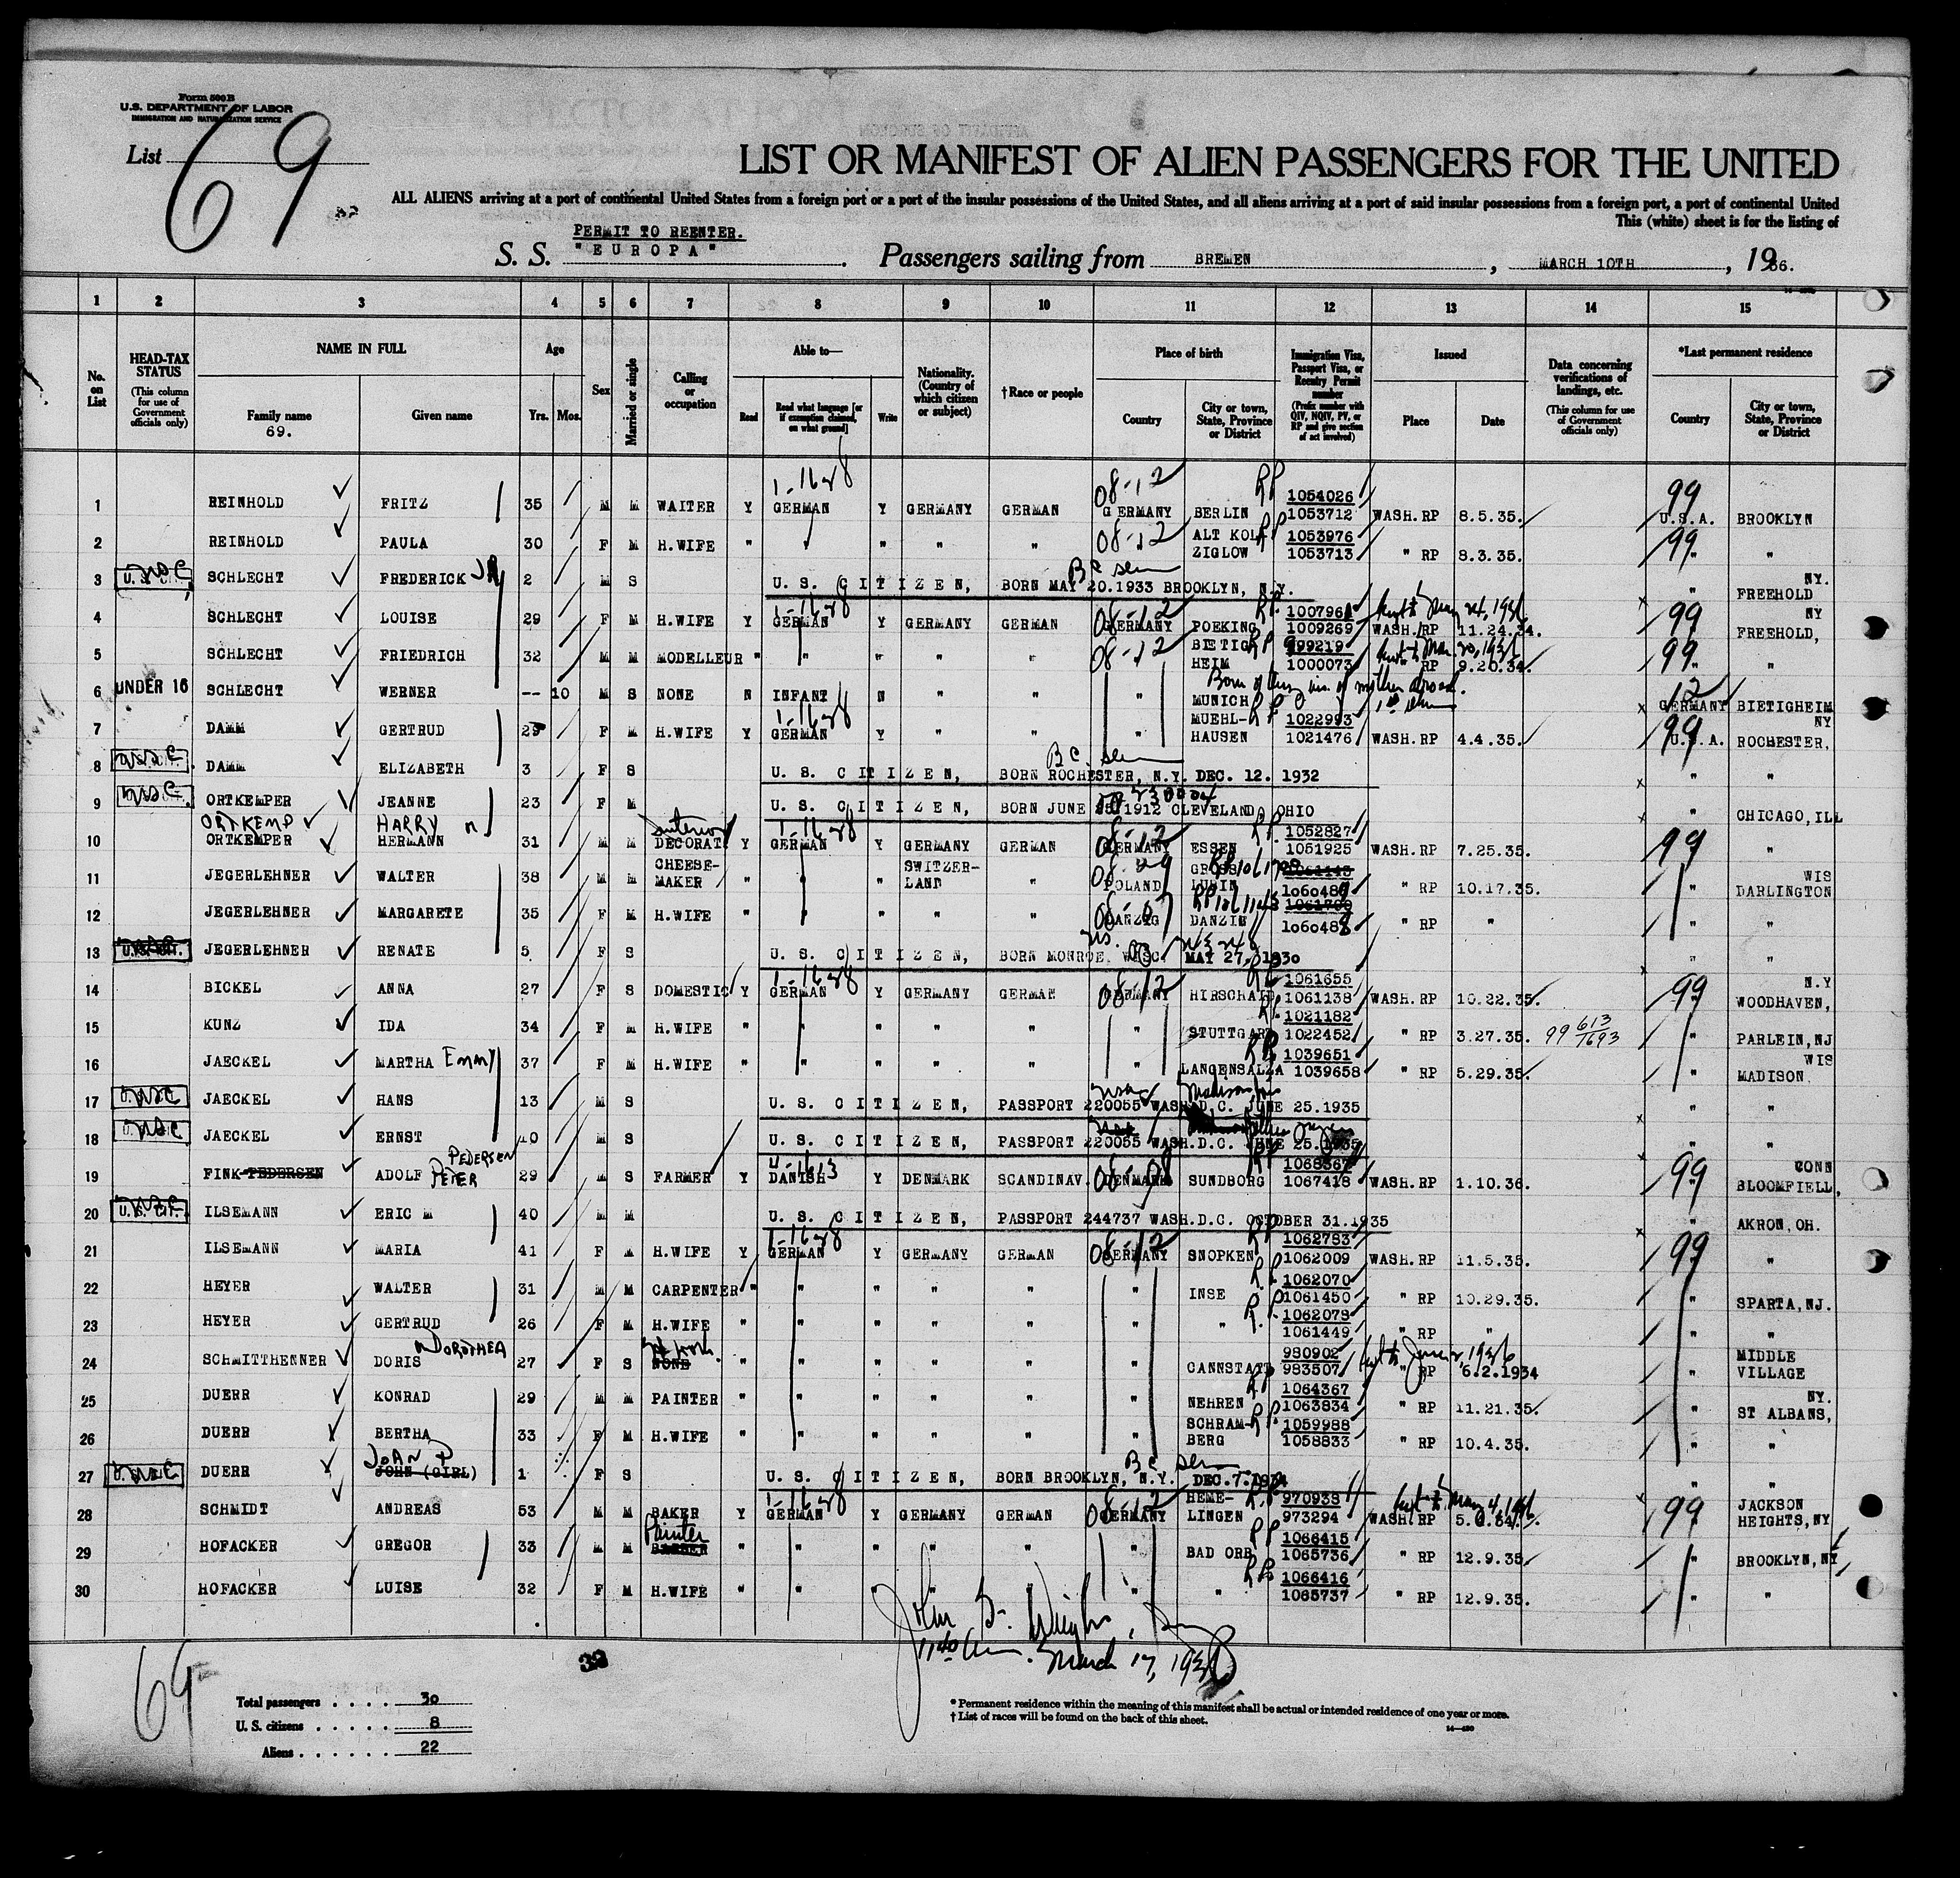 Form 500B
U.S. DEPARTMENT OF LABOR
IMMIGRATION AND NATURALIZATION SERVICE
List 69
LIST OR MANIFEST OF ALIEN PASSENGERS FOR THE UNITED
ALL ALIENS arriving at a port of continental United States from a foreign port or a port of the insular possessions of the United States, and all aliens arriving at a port of said insular possessions from a foreign port, a port of continental United
This (white) sheet is for the listing of
PERMIT TO REENTER.
S. S. "EUROPA" Passengers sailing from BREMEN, MARCH 10TH, 1936.
1 2 3 4 5 6 7 8 9 10 11 12 13 14 15
No. on List
HEAD-TAX STATUS (This column for use of Government officials only)
NAME IN FULL
Family name 69.
Given name
Age Yrs. Mos.
Sex
Married or single
Calling or occupation
Able to— Read
Read what language [or if exemption claimed, on what ground]
Write
Nationality. (Country of which citizen or subject)
†Race or people
Place of birth
Country
City or town, State, Province or District
Immigration Visa, Passport Visa, or Reentry Permit number (Prefix number with QIV, NQIV, PV, or RP and give section of act involved)
Issued
Place
Date
Data concerning verifications of landings, etc. (This column for use of Government officials only)
*Last permanent residence
Country
City or town, State, Province or District
1 REINHOLD FRITZ 35 M M WAITER Y 1-1628 GERMAN Y GERMANY GERMAN 08-12 GERMANY BERLIN RP 1054026 1053712 WASH.RP 8.5.35. 99 U.S.A. BROOKLYN
2 REINHOLD PAULA 30 F M H.WIFE " " " " 08-12 ALT KOL ZIGLOW RP 1053976 1053713 " RP 8.3.35. 99 " "
3 SCHLECHT FREDERICK JR 2 M S U. S. CITIZEN, BORN MAY 20.1933 BROOKLYN, N.Y. " NY. FREEHOLD
4 SCHLECHT LOUISE 29 F M H.WIFE Y 1-1628 GERMAN Y GERMANY GERMAN 08-12 GERMANY POEKING RP. 1007961 1009269 WASH.RP 11.24.34. 99 NY FREEHOLD,
5 SCHLECHT FRIEDRICH 32 M M MODELLEUR " " " " " 08-12 " BIETIG HEIM RP 999219 1000073 RP 9.20.34. 99 " "
6 UNDER 16 SCHLECHT WERNER -- 10 M S NONE N INFANT N " " " MUNICH 12 GERMANY BIETIGHEIM
7 DAMM GERTRUD 29 F M H.WIFE Y 1-1628 GERMAN Y " " " MUEHL- HAUSEN RP 1022993 1021476 WASH.RP 4.4.35. 99 U.S.A. NY ROCHESTER,
8 DAMM ELIZABETH 3 F S U. S. CITIZEN, BORN ROCHESTER, N.Y. DEC. 12. 1932 " "
9 ORTKEMPER JEANNE 23 F M U. S. CITIZEN, BORN JUNE 25.1912 CLEVELAND, OHIO " CHICAGO, ILL
10 ORTKEMP HARRY ORTKEMPER HERMANN 31 M M Interior DECORAT Y 1-1628 GERMAN Y GERMANY GERMAN 08-12 GERMANY ESSEN RP 1052827 1051925 WASH.RP 7.25.35. 99 "
11 JEGERLEHNER WALTER 38 M M CHEESE- MAKER " " " SWITZER- LAND " POLAND GROSS LUBIN 1060489 " RP 10.17.35. " WIS DARLINGTON
12 JEGERLEHNER MARGARETE 35 F M H.WIFE " " " " " DANZIG DANZIG 1060488 " RP " " "
13 JEGERLEHNER RENATE 5 F S U. S. CITIZEN, BORN MONROE, WISC. MAY 27, 1930 " "
14 BICKEL ANNA 27 F S DOMESTIC Y 1-1628 GERMAN Y GERMANY GERMAN 08-12 GERMANY HIRSCHAID RP 1061655 1061138 WASH.RP 10.22.35. 99 N.Y WOODHAVEN,
15 KUNZ IDA 34 F M H.WIFE " " " " " " STUTTGART RP. 1021182 1022452 " RP 3.27.35. 99 613/1693 " PARLEIN, NJ
16 JAECKEL MARTHA Emmy 37 F M H.WIFE " " " " " " LANGENSALZA RP 1039651 1039658 " RP 5.29.35. " WIS MADISON
17 JAECKEL HANS 13 M S U. S. CITIZEN, PASSPORT 220055 WASH.D.C. JUNE 25.1935 " "
18 JAECKEL ERNST 10 M S U. S. CITIZEN, PASSPORT 220055 WASH.D.C. JUNE 25.1935 " "
19 FINK-PEDERSEN ADOLF PETER PEDERSEN 29 M S FARMER Y 4-1613 DANISH Y DENMARK SCANDINAV. DENMARK SUNDBORG 1068367 1067418 WASH.RP 1.10.36. 99 CONN BLOOMFIELL,
20 ILSEMANN ERIC M 40 M M U. S. CITIZEN, PASSPORT 244737 WASH.D.C. OCTOBER 31.1935 " AKRON, OH.
21 ILSEMANN MARIA 41 F M H.WIFE Y 1-1628 GERMAN Y GERMANY GERMAN 08-12 GERMANY SNOPKEN RP 1062783 1062009 WASH.RP 11.5.35. 99 "
22 HEYER WALTER 31 M M CARPENTER " " " " " " INSE RP 1062070 1061450 " RP 10.29.35. " SPARTA, NJ.
23 HEYER GERTRUD 26 F M H.WIFE " " " " " " " R.P. 1062079 1061449 " RP " " "
24 SCHMITTHENNER DORIS DOROTHEA 27 F S NONE " " " " " " CANNSTATT 980902 983507 " RP 6.2.1934 " MIDDLE VILLAGE
25 DUERR KONRAD 29 M M PAINTER " " " " " " NEHREN RP 1064367 1063834 " RP 11.21.35. " NY. ST ALBANS,
26 DUERR BERTHA 33 F M H.WIFE " " " " " " SCHRAM- BERG RP. 1059988 1058833 " RP 10.4.35. " "
27 DUERR JOAN P JOHN (GIRL) 1 F S U. S. CITIZEN, BORN BROOKLYN, N.Y. DEC.7.1934 " "
28 SCHMIDT ANDREAS 53 M M BAKER Y 1-1628 GERMAN Y GERMANY GERMAN 08-12 GERMANY HEME- LINGEN R.P 970938 973294 WASH.RP 99 JACKSON HEIGHTS, NY
29 HOFACKER GREGOR 33 M M Painter " " " " " " BAD ORB RP 1066415 1065736 " RP 12.9.35. " BROOKLYN, NY
30 HOFACKER LUISE 32 F M H.WIFE " " " " " " " RP 1066416 1065737 " RP 12.9.35. " "
March 17, 1936
69
Total passengers . . . . . 30
U. S. citizens . . . . . 8
Aliens . . . . . . 22
* Permanent residence within the meaning of this manifest shall be actual or intended residence of one year or more.
† List of races will be found on the back of this sheet.
14—430